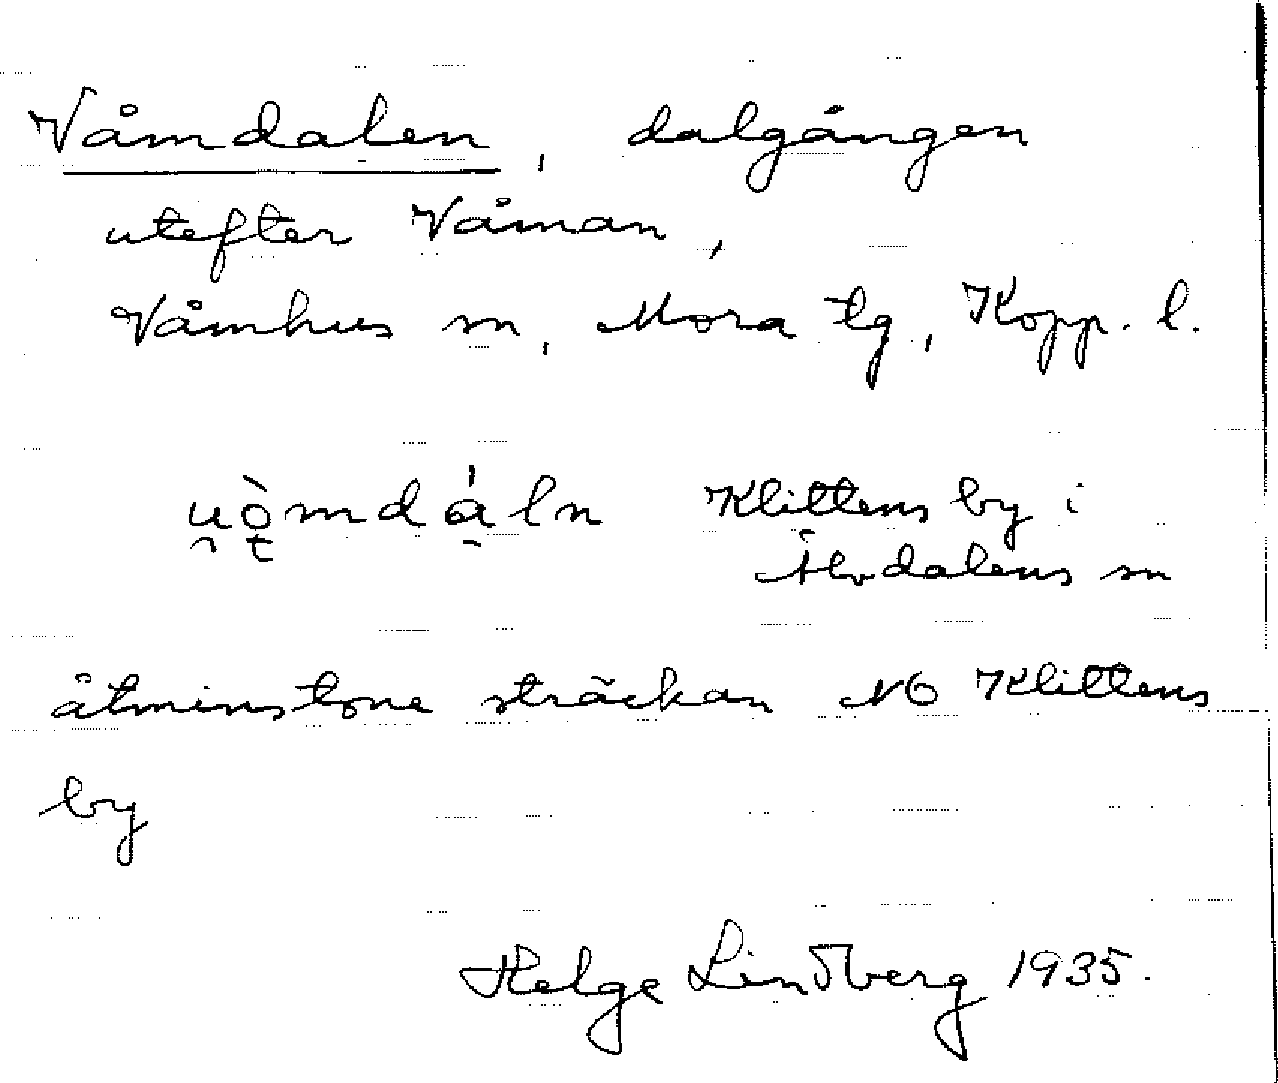 Våmdalen, dalgången
utefter Våman,
Våmhus sn, Mora tg, Kopp. l.
u̯ò̱mdá̱ln Klittens by i
Älvdalens sn
åtminstone sträckan NO Klittens
by
Helge Lindberg 1935.